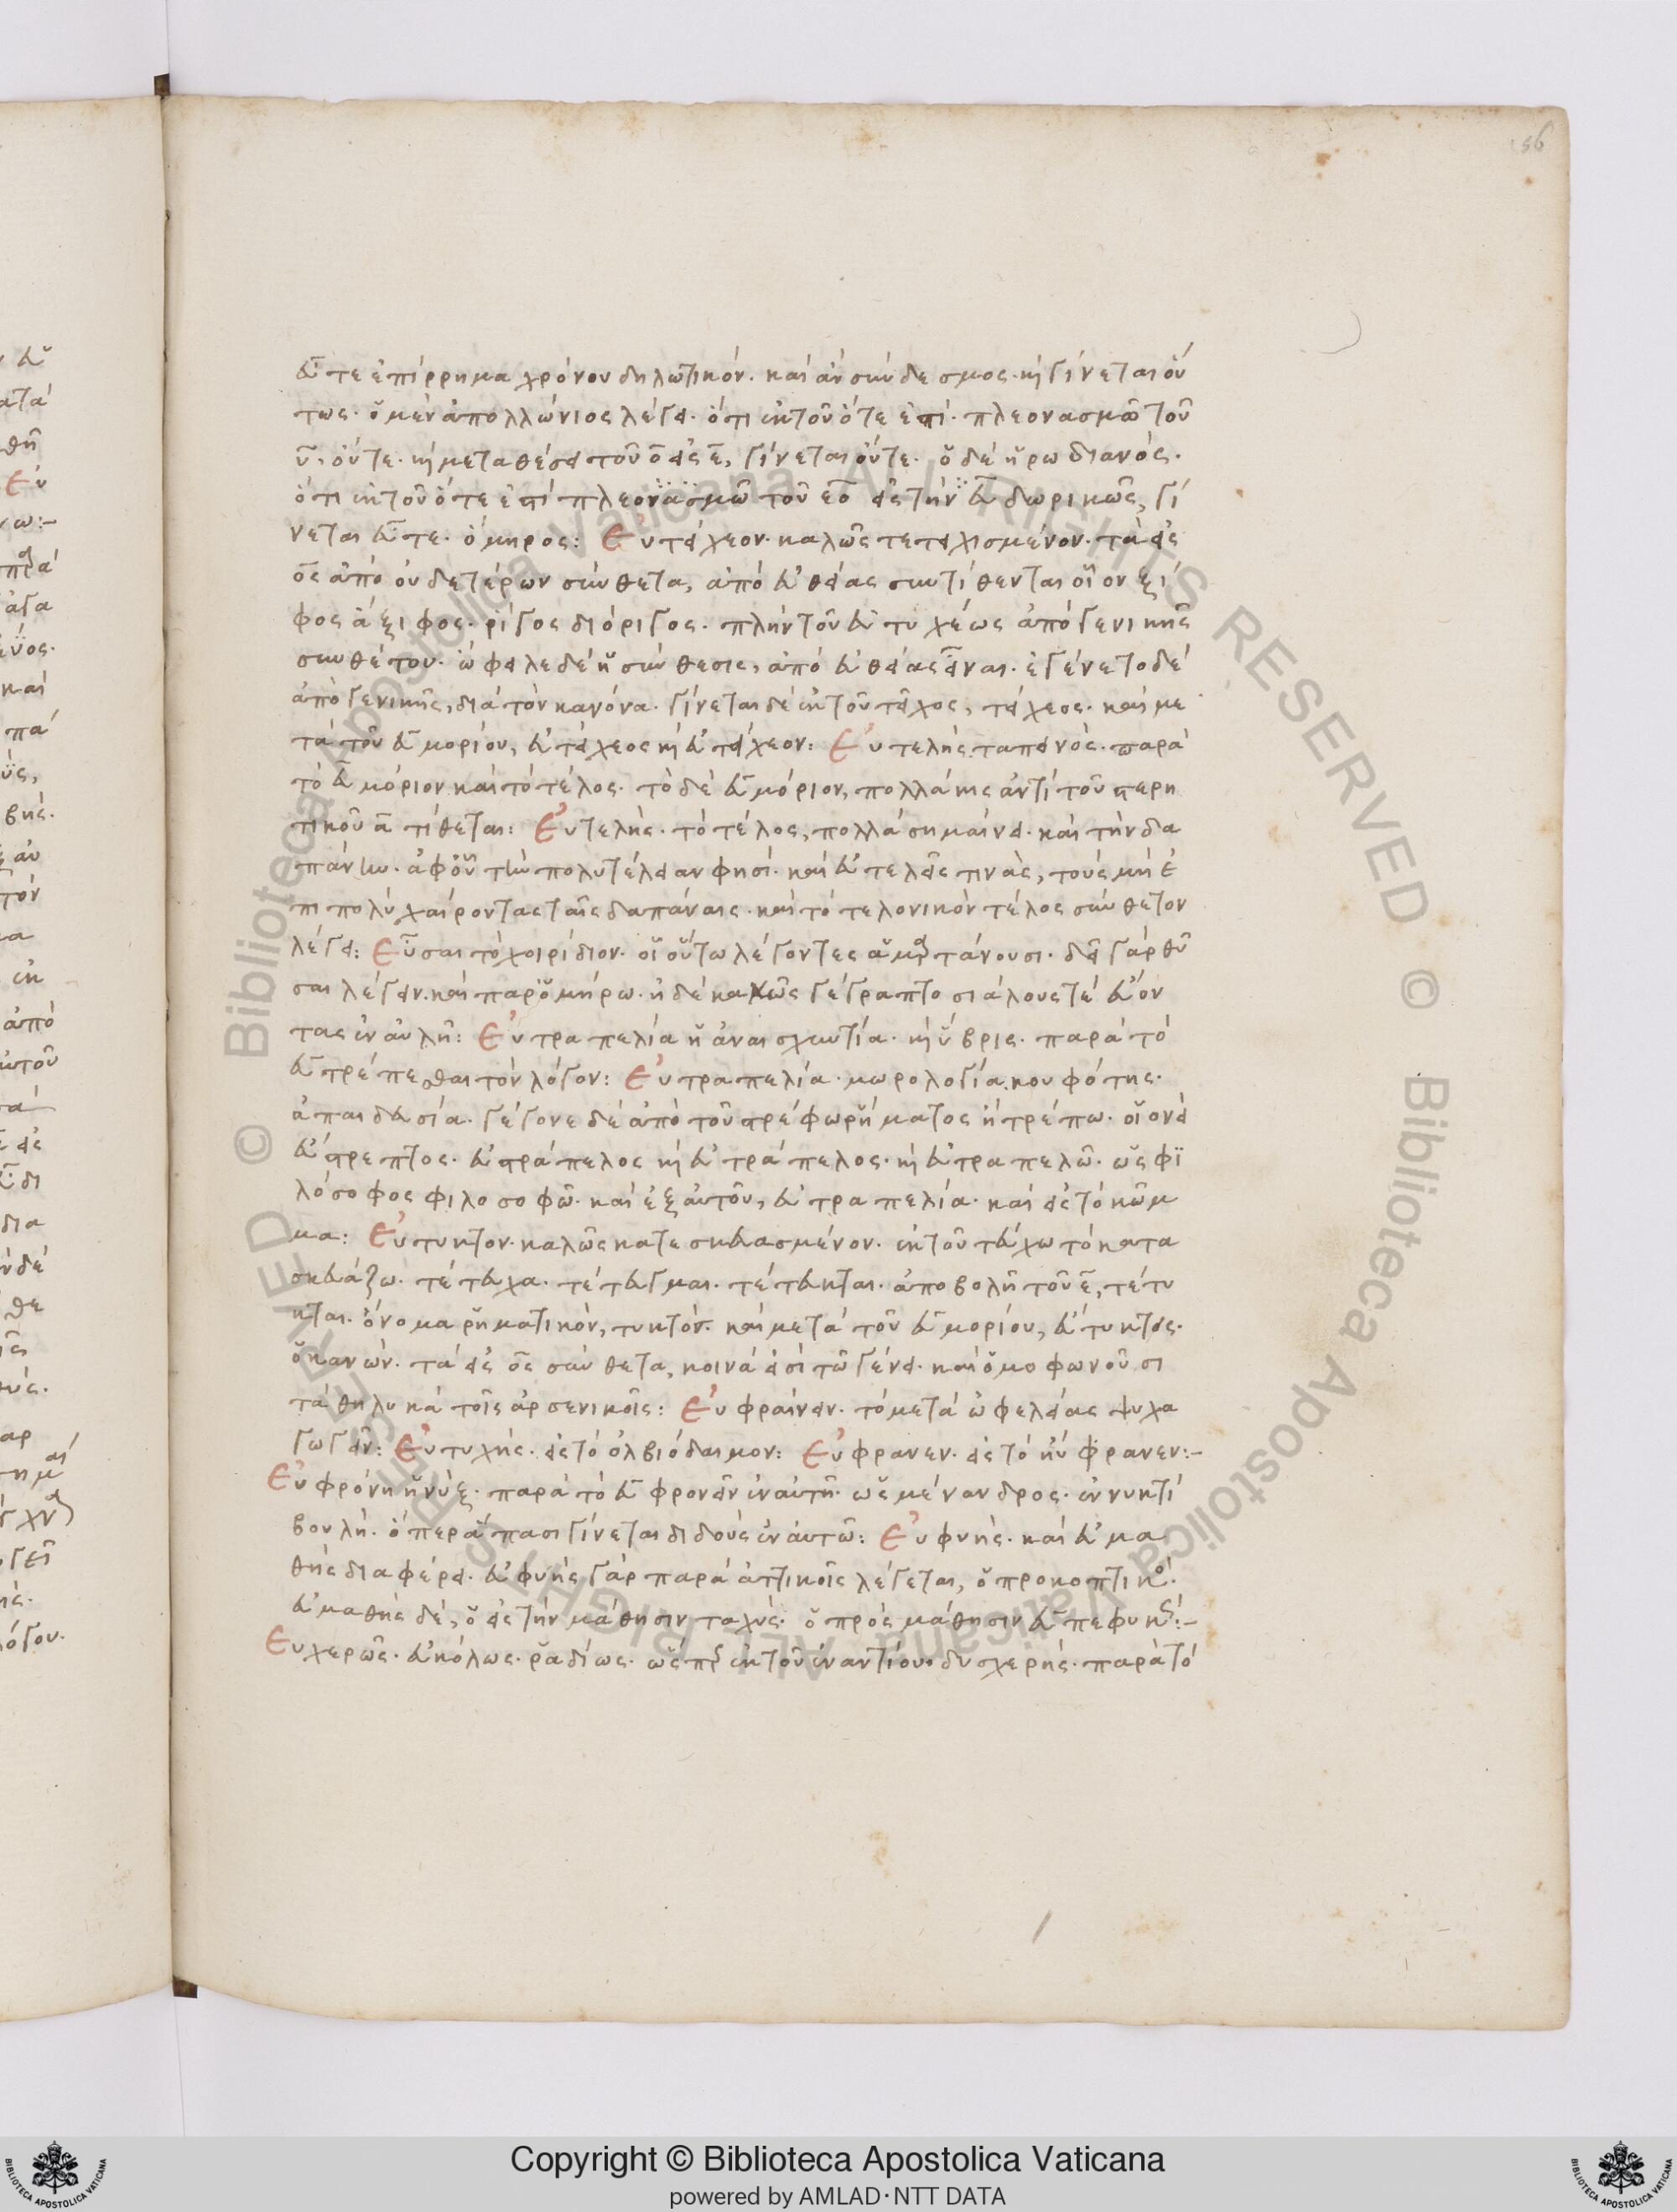 156
εὖτε ἐπίρρημα χρόνου δηλωτικόν. καὶ ἀν σύνδεσμος. καὶ γίνεται οὕ
τως. ὁ μὲν ἀπολλώνιος λέγει. ὅτι ἐκ τοῦ ὅτε ἐστί. πλεονασμῶ τοῦ
ῡ, οὔτε. καὶ μεταθέσει τοῦ ο̄ εἰς ε̄, γίνεται εὖτε. ὁ δὲ ἡρωδιανός.
ὅτι ἐκ τοῦ ὅτε ἐστί πλεονασμῶ τοῦ εο εἰς τὴν ευ δωρικῶς, γί
νεται εὖτε. ὅμηρος: Εὐτείχεον. καλῶς τετειχισμένον. τὰ εἰς
ος ἀπὸ οὐδετέρων σύνθετα, ἀπὸ εὐθείας συντίθενται οἷον ξί
φος ἄξιφος. ῥίγος διόριγος. πλὴν τοῦ εὐτυχέως ἀπὸ γενικῆς
συνθέτου. ὤφειλε δὲ ἡ σύνθεσις, ἀπὸ εὐθείας εἶναι. ἐγένετο δὲ
ἀπὸ γενικῆς, διὰ τὸν κανόνα. γίνεται δὲ ἐκ τοῦ τεῖχος, τείχεος. καὶ με
τὰ τοῦ εὖ μορίου, εὐτείχεος καὶ εὐτείχεον: Εὐτελής. ταπεινός. παρὰ
τὸ εὖ μόριον καὶ τὸ τέλος. τὸ δὲ εὖ μόριον, πολλάκις ἀντὶ τοῦ στερη
τικοῦ ᾱ τίθεται: Εὐτελής. τὸ τέλος, πολλὰ σημαίνει. καὶ τὴν δα
πάνην. ἀφ' οὗ τὴν πολυτέλειαν φησί. καὶ εὐτελεῖς τινὰς, τοὺς μὴ ἐ
πιπολὺ χαίροντας ταῖς δαπάναις. καὶ τὸ τελονικὸν τέλος σύνθετον
λέγει: Εὖσαι τὸ χοιρίδιον. οἱ οὕτω λέγοντες ἁμαρτάνουσι. δεῖ γὰρ θῦ
σαι λέγειν. καὶ παρ' ὁμήρω. ἡ δὲ κακῶς γέγραπτο σιάλους τὲ εὔον
τας ἐν αὐλῆ: Εὐτραπελία ἡ ἀναισχυντία. καὶ ὕβρις. παρὰ τὸ
εὖ τρέπεσθαι τὸν λόγον: Εὐτραπελία. μωρολογία. κουφότης.
ἀπαιδευσία. γέγονε δὲ ἀπὸ τοῦ στρέφω ῥήματος ἢ τρέπω. οἱονεὶ
εὔστρεπτος. εὐστράπελος καὶ εὐτράπελος. καὶ εὐτραπελῶ. ὡς φϊ
λόσοφος φιλοσοφῶ. καὶ ἐξ αὐτοῦ, εὐτραπελία. καὶ εἰς τὸ κῶμ
μα: Εὔτυκτον. καλῶς κατεσκευασμένον. ἐκ τοῦ τεύχω τὸ κατα
σκευάζω. τέτευχα. τέτευγμαι. τέτευκται. ἀποβολῆ τοῦ ε̄, τέτυ
κται. ὄνομα ῥηματικὸν, τυκτόν. καὶ μετὰ τοῦ εὖ μορίου, εὔτυκτος.
ὁ κανών. τὰ εἰς ος σύνθετα, κοινὰ εἰσὶ τῶ γένει. καὶ ὁμοφωνοῦσι
τὰ θηλυκὰ τοῖς ἀρσενικοῖς: Εὐφραίνειν. τὸ μετὰ ὠφελείας ψυχα
γωγεῖν: Εὐτυχής. εἰς τὸ ὀλβιόδαιμον: Εὔφρανεν. εἰς τὸ ηὔφρανεν:–
Εὐφρόνη ἡ νὺξ. παρὰ τὸ εὖ φρονεῖν ἐν αὐτῆ. ὡς μένανδρος. ἐν νυκτὶ
βουλή. ὅπερ ἅπασι γίνεται διδοὺς ἐν αὐτῶ: Εὐφυής. καὶ εὐμα
θὴς διαφέρει. εὐφυὴς γὰρ παρὰ ἀττικοῖς λέγεται, ὁ προκοπτικός.
εὐμαθὴς δὲ, ὁ εἰς τὴν μάθησιν ταχύς. ὁ πρὸς μάθησιν εὖ πεφυκώς:–
Εὐχερῶς. εὐκόλως. ῥαδίως. ὥσπερ ἐκ τοῦ ἐναντίου. δυσχερής. παρὰ τὸ
© Biblioteca Apostolica Vaticana ALL RIGHTS RESERVED
© Biblioteca Apostolica Vaticana ALL RIGHTS RESERVED
Copyright © Biblioteca Apostolica Vaticana
powered by AMLAD·NTT DATA
BIBLIOTECA APOSTOLICA VATICANA
BIBLIOTECA APOSTOLICA VATICANA